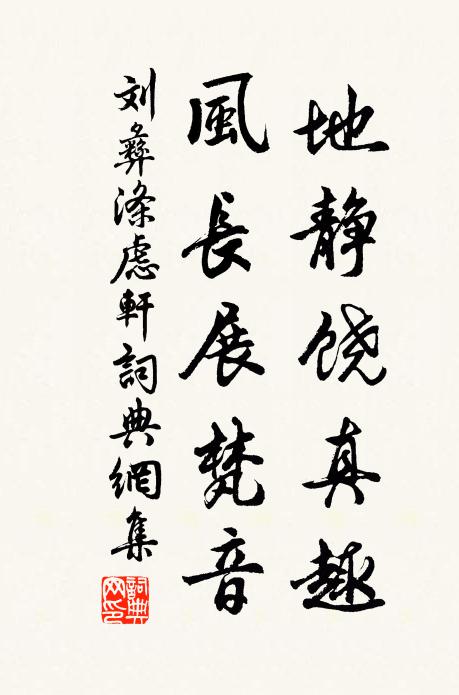 地静饶真趣
風長展梵音
刘彝滌慮軒詞典網集
詞典
网印